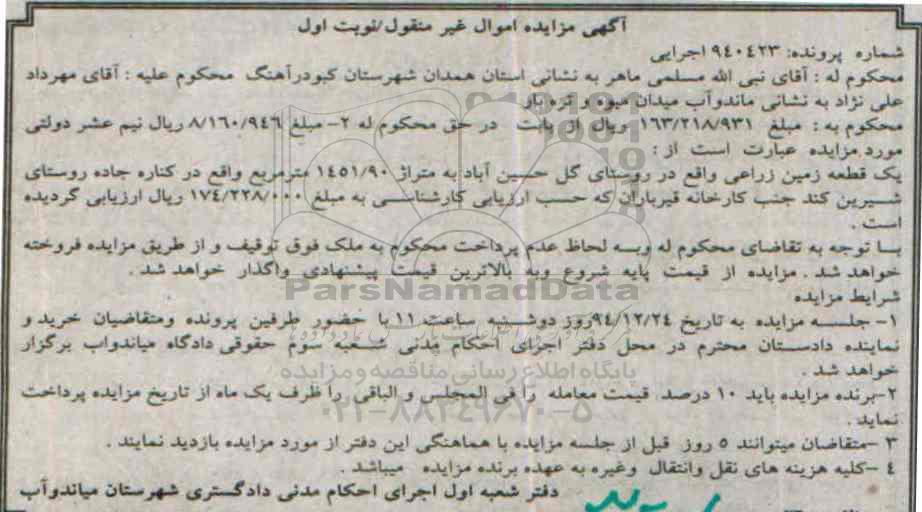 آگهی مزایده اموال غیر منقول/نوبت اول
شماره پرونده: ۹٤۰٤۲۳ اجرایی
محکوم له : آقای نبی الله مسلمی ماهر به نشانی استان همدان شهرستان کبودرآهنگ محکوم علیه : آقای مهرداد
علی نژاد به نشانی ماندوآب میدان میوه و تره بار
محکوم به : مبلغ ۱٦۳/۲۱۸/۹۳۱ ریال از بابت در حق محکوم له ۲- مبلغ ۸/۱٦۰/۹٤٦ ریال نیم عشر دولتی
مورد مزایده عبارت است از :
یک قطعه زمین زراعی واقع در روستای گل حسین آباد به متراژ ۱٤٥۱/۹۰ مترمربع واقع در کناره جاده روستای
شیرین کند جنب کارخانه قیرباران که حسب ارزیابی کارشناسی به مبلغ ۱۷٤/۲۲۸/۰۰۰ ریال ارزیابی گردیده
است .
با توجه به تقاضای محکوم له وبه لحاظ عدم پرداخت محکوم به ملک فوق توقیف و از طریق مزایده فروخته
خواهد شد . مزایده از قیمت پایه شروع وبه بالاترین قیمت پیشنهادی واگذار خواهد شد .
ParsNamadData
شرایط مزایده
۱- جلسه مزایده به تاریخ ۹٤/۱۲/۲٤روز دوشنبه ساعت ۱۱ با حضور طرفین پرونده ومتقاضیان خرید و
نماینده دادستان محترم در محل دفتر اجرای احکام مدنی شعبه سوم حقوقی دادگاه میاندواب برگزار
خواهد شد .
پایگاه اطلاع رسانی مناقصه و مزایده
۲-برنده مزایده باید ۱۰ درصد قیمت معامله را فی المجلس و الباقی را ظرف یک ماه از تاریخ مزایده پرداخت
نماید .
۰۲۱-۸۸۳٤۹٦۷۰-۵
۳ -متقاضان میتوانند ٥ روز قبل از جلسه مزایده با هماهنگی این دفتر از مورد مزایده بازدید نمایند .
٤ -کلیه هزینه های نقل وانتقال وغیره به عهده برنده مزایده میباشد .
دفتر شعبه اول اجرای احکام مدنی دادگستری شهرستان میاندوآب